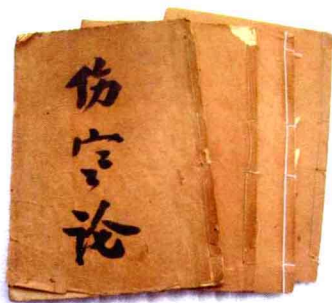 伤寒论